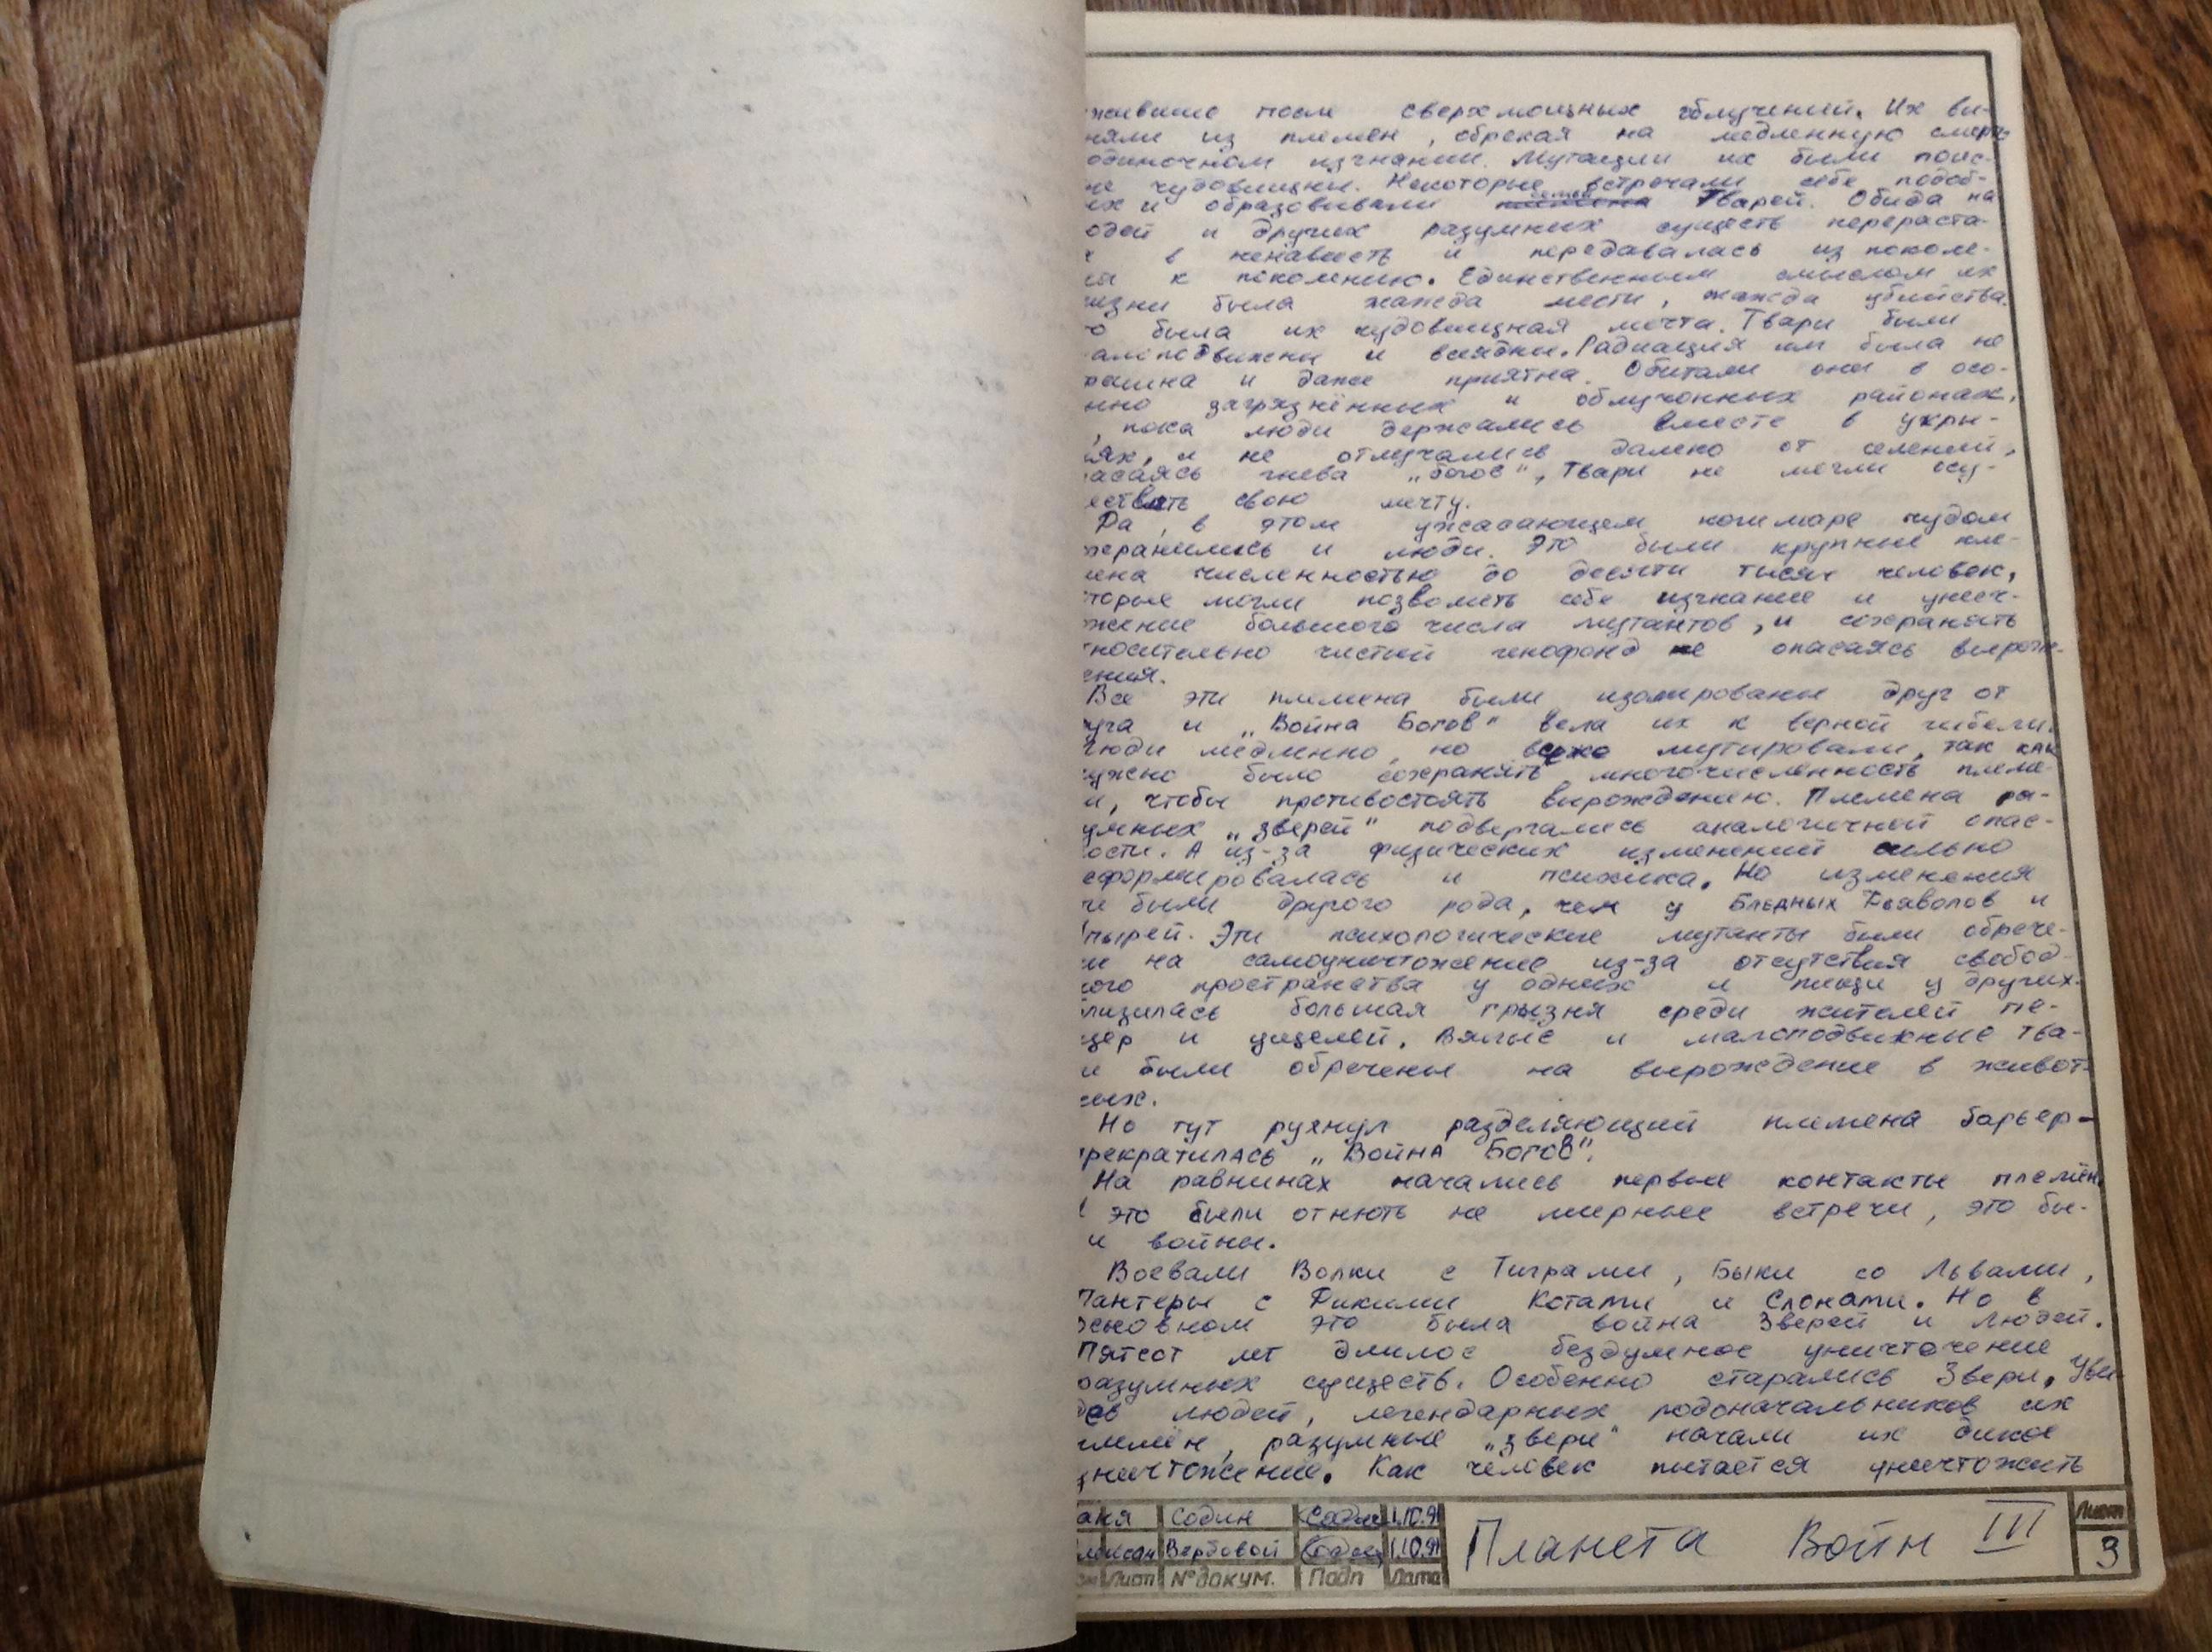 живших после сверхмощных облучений. Их вы-
няли из племен, обрекая на медленную смерть
одиночном изгнании. Мутации их были поис-
не чудовищны. Некоторые встречали себе подоб-
ых и образовывали семьи Тварей. Обида на
юдей и других разумных существ перераста-
в ненависть и передавалась из поколе-
ия к поколению. Единственным смыслом их
изни была жажда мести, жажда убийства.
то была их чудовищная мечта. Твари были
алоподвижны и всеядны. Радиация им была не
рашна и даже приятна. Обитали они в осо-
нно загрязнённых и облучонных районах.
, пока люди держались вместе в укры-
иях, и не отлучались далеко от селений,
асаясь гнева „богов", Твари не могли осу-
ествить свою мечту.
Да, в этом ужасающем кошмаре чудом
хранились и люди. Это были крупные пле-
мена численностью до десяти тысяч человек,
торые могли позволить себе изгнание и унич-
жение большого числа мутантов, и сохранять
носительно чистый генофонд не опасаясь вырож-
ения.
Все эти племена были изолированы друг от
уга и „Война Богов" вела их к верной гибели.
Люди медленно, но верно мутировали, так как
ужно было сохранять многочисленность племе-
и, чтобы противостоять вырождению. Племена ра-
умных „зверей" подвергались аналогичной опас-
ости. А из-за физических изменений сильно
еформировалась и психика. Но изменения
ти были другого рода, чем у Бледных Дьяволов и
пырей. Эти психологические мутанты были обрече-
ны на самоуничтожение из-за отсутствия свобод-
ного пространства у одних и пищи у других.
лизилась большая грызня среди жителей пе-
щер и ущелей. Вялые и малоподвижные тва-
и были обречены на вырождение в живот-
ных.
Но тут рухнул разделяющий племена барьер -
рекратилась „Война Богов".
На равнинах начались первые контакты племён.
это были отнють не мирные встречи, это бы-
и войны.
Воевали Волки с Тиграми, Быки со Львами,
Пантеры с Дикими Котами и Слонами. Но в
основном это была война Зверей и Людей.
Пятсот лет длилос бездумное уничтожение
разумных существ. Особенно старались Звери. Уви-
дев людей, легендарных родоначальников их
племён, разумные „звери" начали их дикое
уничтожение. Как человек пытается уничтожить
аня Содин 1.10.91
лексан Вербовой 1.10.91
Лист №докум. Подп Дата
Планета Войн III
Лист
3